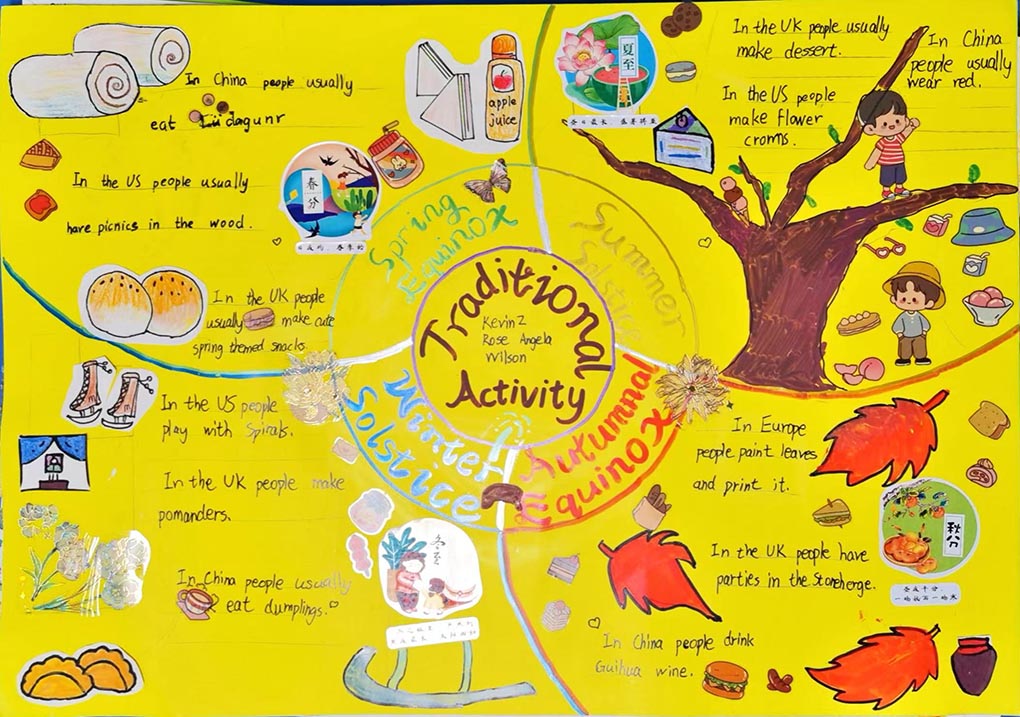 In China people usually
eat Lüdagunr
In the US people usually
have picnics in the wood.
春分
In the UK people
usually make cute
spring themed snacks
apple
juice
Spring
Equinox
夏至
In the UK people usually
make dessert.
In the US people
make flower
croms.
In China
people usually
wear red.
Summer
Solstice
Traditional
KevinZ
Rose Angela
Wilson
Activity
Winter
Solstice
In the US people
play with Spirals.
In the UK people make
pomanders.
In China people usually
eat dumplings.
冬至
Autumnal
Equinox
In Europe
people paint leaves
and print it.
In the UK people have
parties in the Stoneherge.
秋分
In China people drink
Guihua wine.